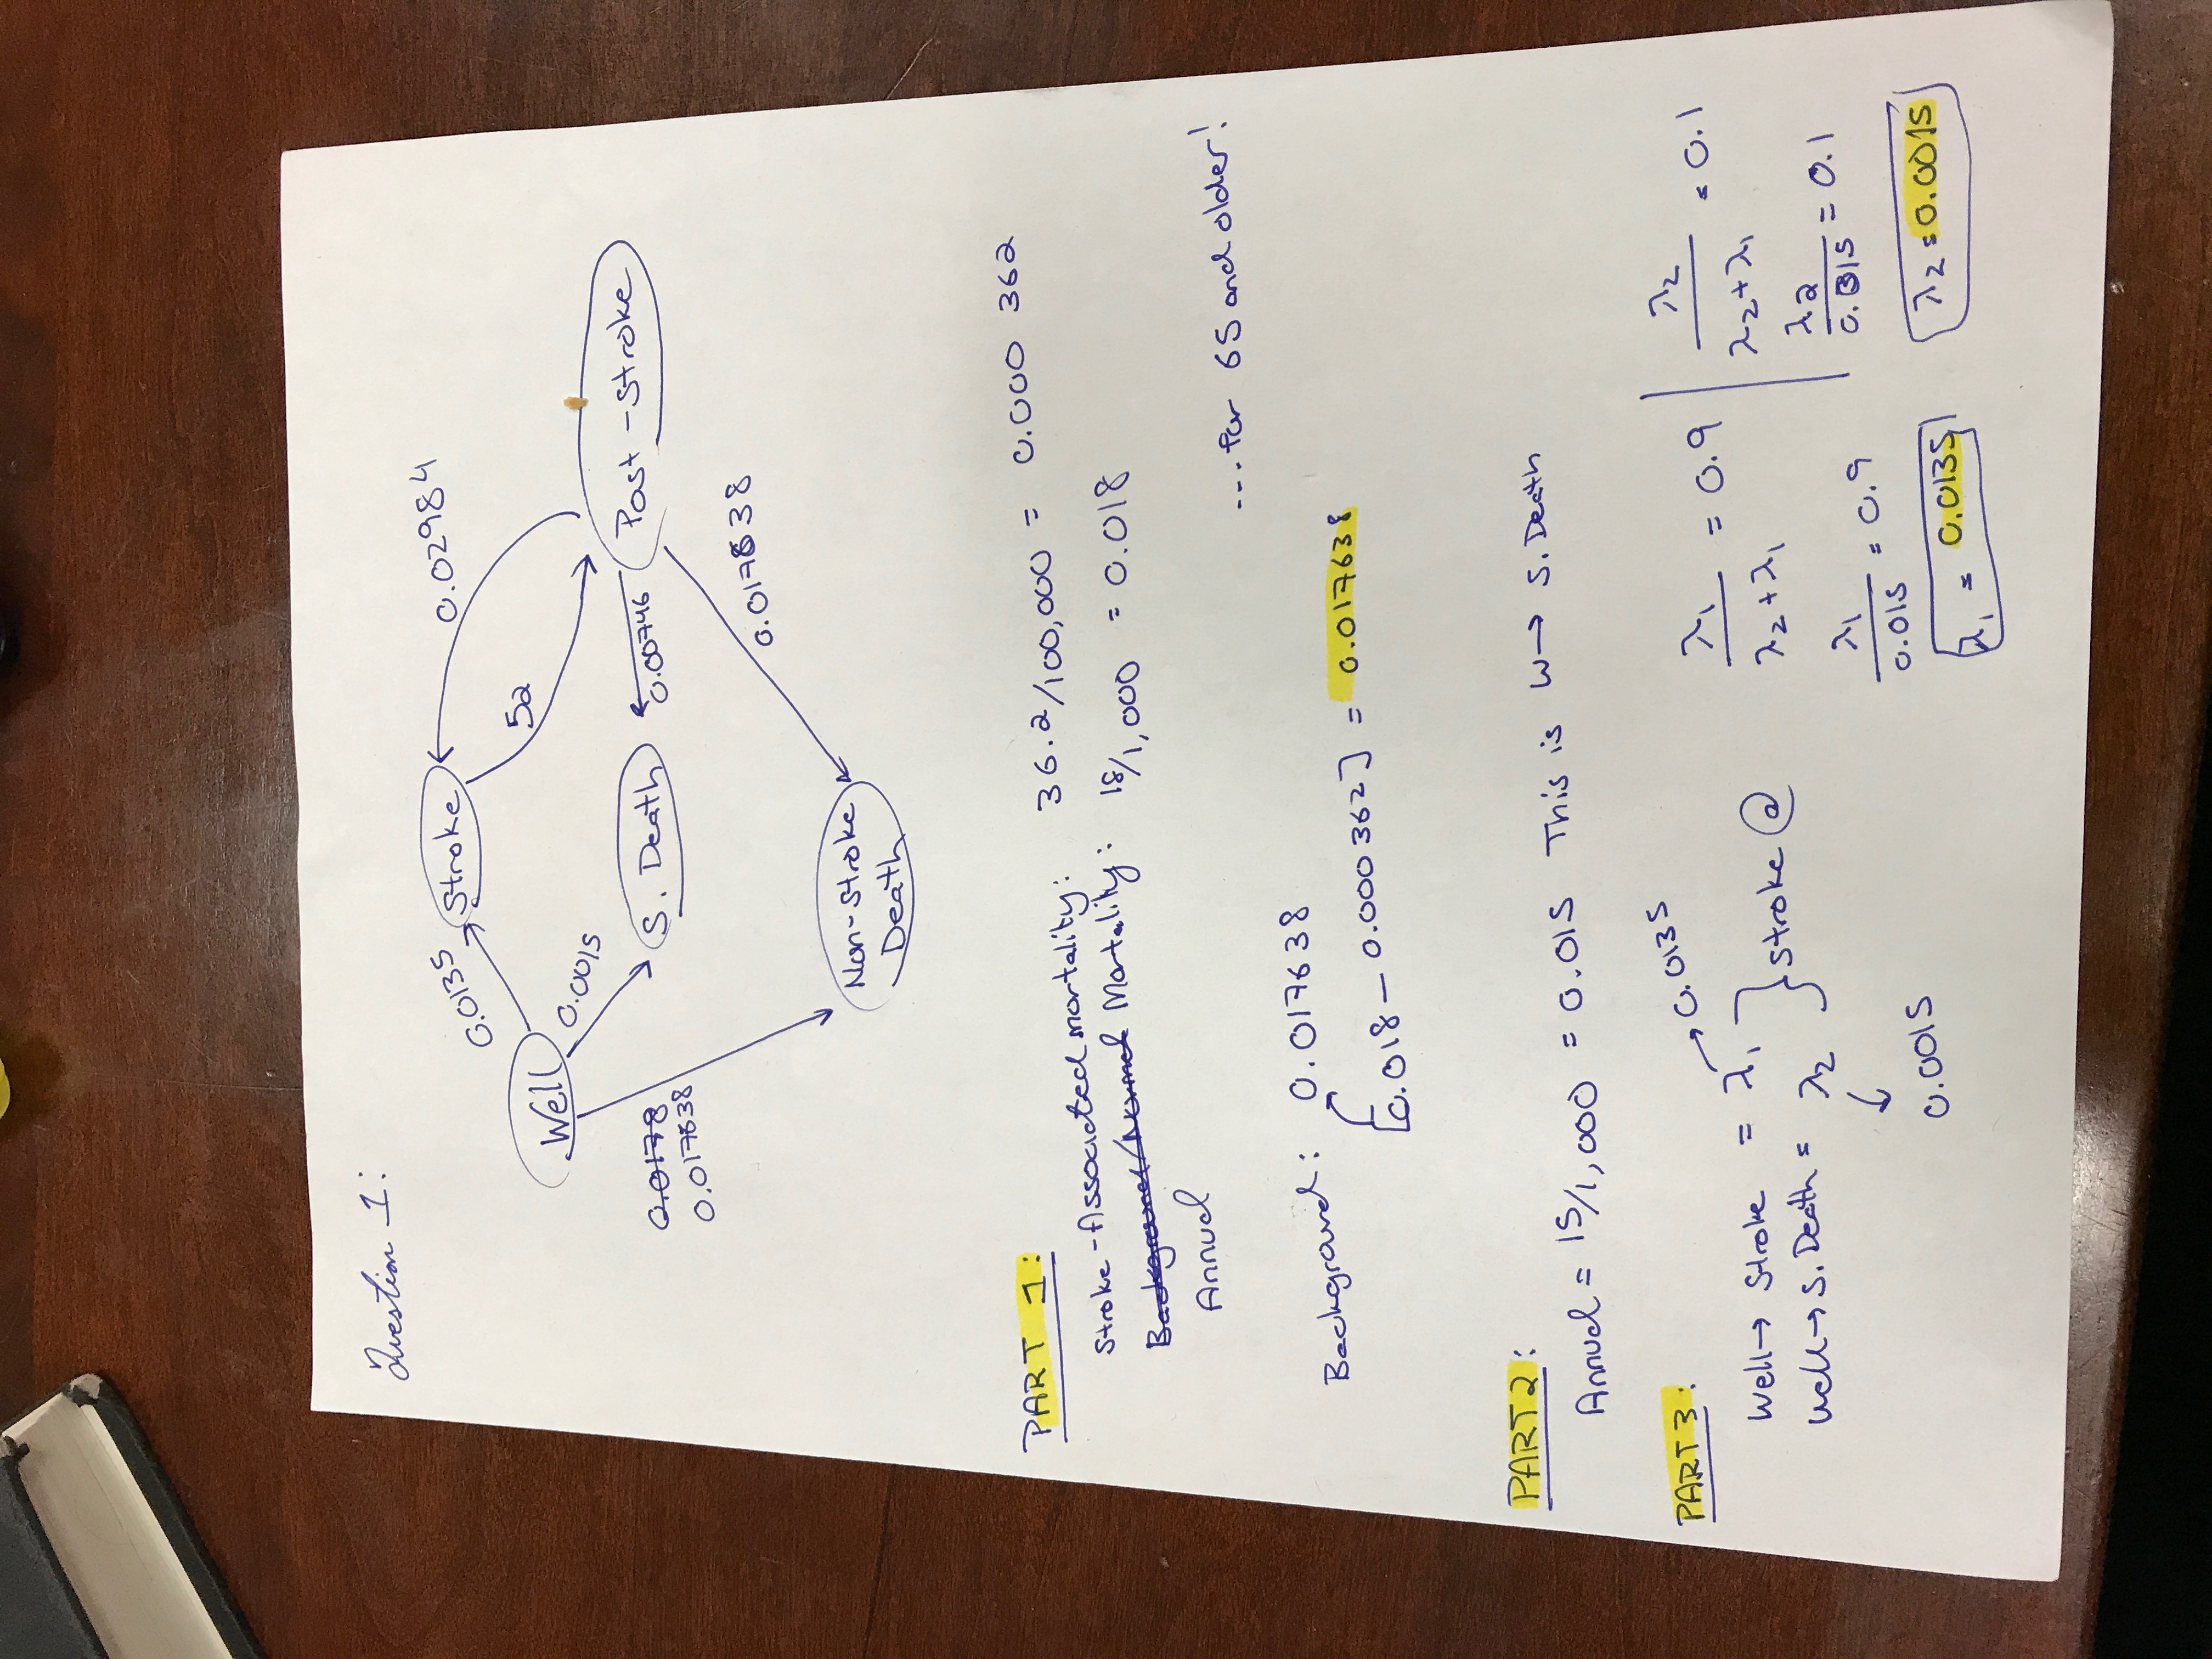 Question 1:
0.0135
Stroke
0.02984
Well
52
0.0015
S. Death
0.00746
Post-Stroke
0.0178
0.017638
0.017638
Non-Stroke
Death
PART 1:
Stroke-Associated mortality: 36.2/100,000 = 0.000 362
Background/Normal Mortality: 18/1,000 = 0.018
Annual
...for 65 and older!
Background: 0.017638
[0.018 - 0.000362] = 0.017638
PART 2:
Annual = 15/1,000 = 0.015 This is W→ S. Death
PART 3:
→0.0135
Well→ Stroke = λ₁
Well→ S. Death = λ₂
} stroke @
↓
0.0015
λ₁/(λ₂+λ₁) = 0.9
λ₁/0.015 = 0.9
λ₁ = 0.0135
λ₂/(λ₂+λ₁) = 0.1
λ₂/0.015 = 0.1
λ₂ = 0.0015